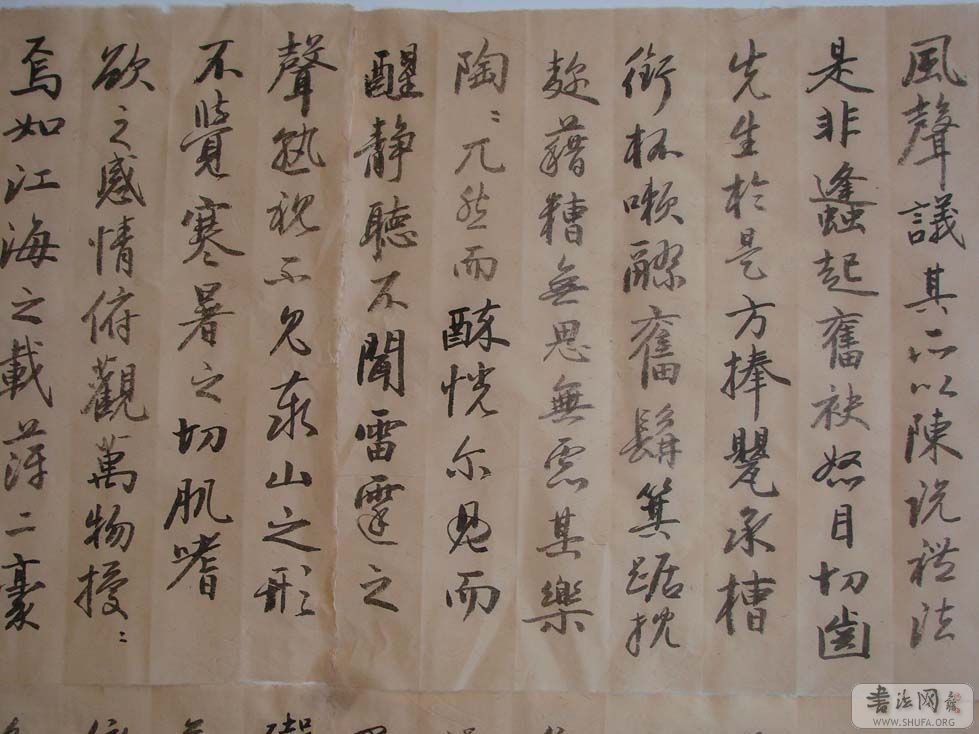 風聲議其所以陳説禮法
是非蠭起奮袂怒目切齒
先生於是方捧甖承槽
銜杯嗽醪奮髯箕踞枕
麹藉糟無思無慮其樂
陶〻兀然而醉恍尔而
醒静聽不聞雷霆之
聲熟視不見泰山之形
不覺寒暑之切肌嗜
欲之感情俯觀萬物擾〻
焉如江海之載萍二豪
书法网
WWW.SHUFA.ORG